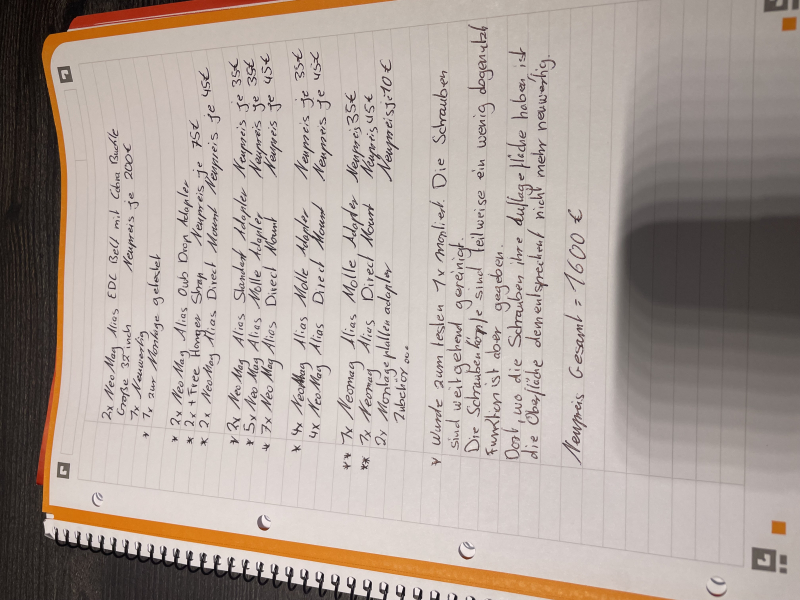 2x NeoMag Alias EDC Belt mit Cobra Buckle
Größe 32 inch Neupreis je 200€
1x Neuwertig
* 1x zur Montage getestet
* 2x NeoMag Alias Owb Drop Adapter
* 2x + Free Hanger Strap Neupreis je 75€
* 2x NeoMag Alias Direct Mount Neupreis je 45€
* 2x NeoMag Alias Standart Adapter Neupreis je 35€
* 5x NeoMag Alias Molle Adapter Neupreis je 35€
* 7x NeoMag Alias Direct Mount Neupreis je 45€
* 4x NeoMag Alias Molle Adapter Neupreis je 35€
4x NeoMag Alias Direct Mount Neupreis je 45€
** 1x Neomag Alias Molle Adapter Neupreis 35€
** 1x Neomag Alias Direct Mount Neupreis 45€
2x Montageplatten adapter Neupreis je 10€
Zubehör
* Wurde zum testen 1x montiert. Die Schrauben
sind weitgehend gereinigt.
Die Schraubenköpfe sind teilweise ein wenig abgenutzt
Funktion ist aber gegeben.
Dort wo die Schrauben ihre Auflagefläche haben ist
die Oberfläche dementsprechend nicht mehr neuwertig.
Neupreis Gesamt = 1600 €